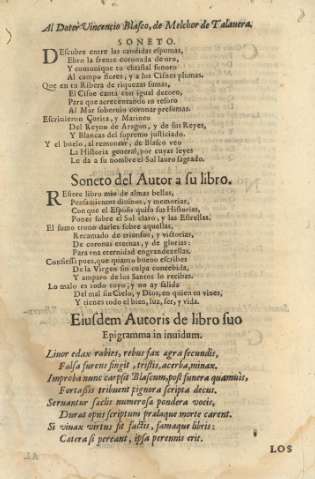 Al Dotor Vincencio Blasco, de Melchor de Talauera.
SONETO.
DEscubre entre las candidas espumas,
Ebro la frente coronada de oro,
Y comunique tu christal sonoro
Al campo flores, y a los Cisnes plumas.
Que en tu Ribera de riquezas sumas,
El Cisne canta con igual decoro,
Para que acrecentando tu tesoro
Al Mar soberuio coronar presumas.
Escriuieron Çurita, y Marineo
Del Reyno de Aragon, y de sus Reyes,
Y Blancas del supremo justiciado.
Y el buelo, al remontar, de Blasco veo
La Historia general, por cuyas leyes
Le da a su nombre el Sol lauro sagrado.
Soneto del Autor a su libro.
REfiere libro mio de almas bellas,
Pensamientos diuinos, y memorias,
Con que el Esposo quiso sus Historias,
Poner sobre el Sol claro, y las Estrellas.
El sumo trono darles sobre aquellas,
Recamado de triunfos, y victorias,
De coronas eternas, y de glorias:
Para tea eternidad engrandezellas.
Confiessa pues, que quanto bueno escribes
De la Virgen sin culpa concebida,
Y amparo de los Santos lo recibes.
Lo malo es todo tuyo; y no ay salida
Del mal sin Cielo, y Dios, en quien es viues,
Y tienes todo el bien, luz, ser, y vida.
Eiusdem Autoris de libro suo
Epigramma in inuidum.
Liuor edax rabies, rebus fax agra secundis,
Falsa furens fingit, tristis, acerba, minax.
Improba nunc carpsit Blascum, post funera quamuis,
Fortassis tribuent pignora scripta decus.
Seruantur saclis numerosa pondera vocis,
Durat opus scriptum pralaque morte carent.
Si viuax virtus sit factis, famaque libris:
Catera si pereant, ipsa perennis erit.
LOS